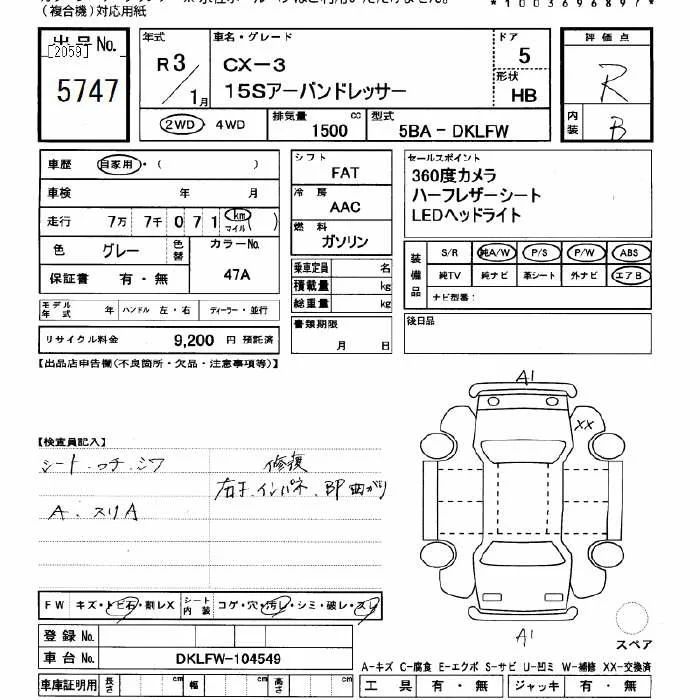 (複合機)対応用紙
*1003696897*
出品No.
[2059]
5747
年式
R3/1月
車名・グレード
CX-3
15Sアーバンドレッサー
ドア
5
形状
HB
評価点
R
内装
B
2WD・4WD
排気量
1500
cc
型式
5BA-DKLFW
車歴
自家用・( )
車検 年 月
走行 7万 7千 071 km マイル
色 グレー 色替 カラーNo. 47A
保証書 有・無
モデル年式 年 ハンドル 左・右 ディーラー・並行
リサイクル料金 9,200 円 預託済
シフト
FAT
冷房
AAC
燃料
ガソリン
乗車定員 名
積載量 kg
総重量 kg
書類期限
月 日
セールスポイント
360度カメラ
ハーフレザーシート
LEDヘッドライト
装備品
S/R 純A/W P/S P/W ABS
純TV 純ナビ 革シート 外ナビ エアB
ナビ型番:
後日品
【出品店申告欄(不良箇所・欠品・注意事項等)】
【検査員記入】
シート・シワ
A・スリA
修復
右インパネ・BP曲がり
A1
XX
A1
スペア
FW キズ・トビ石・割レX シート内装 コゲ・穴・汚レ・シミ・破レ・スレ
登録No.
車台No. DKLFW-104549
車庫証明用 長さ cm 幅 cm 高さ cm
A-キズ C-腐食 E-エクボ S-サビ U-凹ミ W-補修 XX-交換済
工具 有・無 ジャッキ 有・無